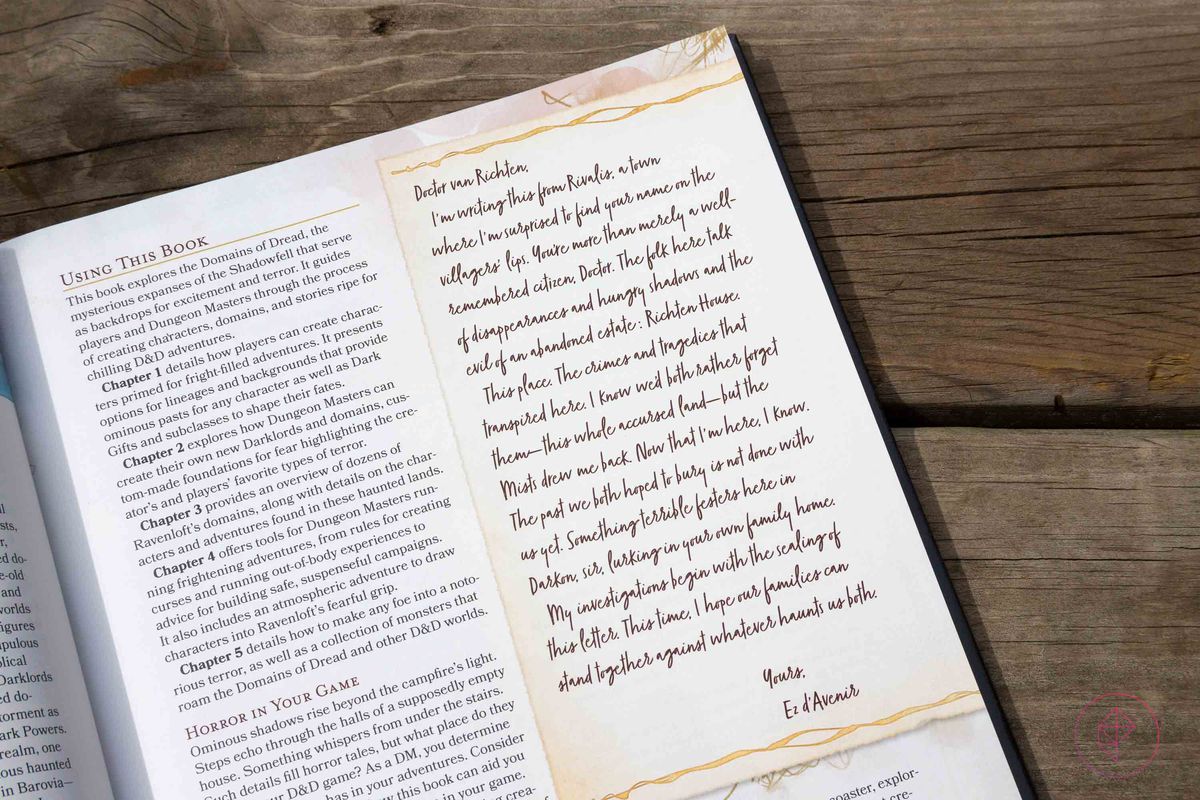 l
sts,
r,
ed do-
e-old
and
worlds
figures
pulous
olical
Darklords
ed do-
torment as
ark Powers.
realm, one
ous haunted
in Barovia—
USING THIS BOOK
This book explores the Domains of Dread, the
mysterious expanses of the Shadowfell that serve
as backdrops for excitement and terror. It guides
players and Dungeon Masters through the process
of creating characters, domains, and stories ripe for
chilling D&D adventures.
Chapter 1 details how players can create charac-
ters primed for fright-filled adventures. It presents
options for lineages and backgrounds that provide
ominous pasts for any character as well as Dark
Gifts and subclasses to shape their fates.
Chapter 2 explores how Dungeon Masters can
create their own new Darklords and domains, cus-
tom-made foundations for fear highlighting the cre-
ator's and players' favorite types of terror.
Chapter 3 provides an overview of dozens of
Ravenloft's domains, along with details on the char-
acters and adventures found in these haunted lands.
Chapter 4 offers tools for Dungeon Masters run-
ning frightening adventures, from rules for creating
curses and running out-of-body experiences to
advice for building safe, suspenseful campaigns.
It also includes an atmospheric adventure to draw
characters into Ravenloft's fearful grip.
Chapter 5 details how to make any foe into a noto-
rious terror, as well as a collection of monsters that
roam the Domains of Dread and other D&D worlds.
HORROR IN YOUR GAME
Ominous shadows rise beyond the campfire's light.
Steps echo through the halls of a supposedly empty
house. Something whispers from under the stairs.
Such details fill horror tales, but what place do they
our D&D game? As a DM, you determine
has in your adventures. Consider
ow this book can aid you
in your game.
crea-
Doctor van Richten,
I'm writing this from Rivalis, a town
where I'm surprised to find your name on the
villagers' lips. You're more than merely a well-
remembered citizen, Doctor. The folk here talk
of disappearances and hungry shadows and the
evil of an abandoned estate: Richten House.
This place. The crimes and tragedies that
transpired here. I know we'd both rather forget
them—this whole accursed land—but the
Mists drew me back. Now that I'm here, I know.
The past we both hoped to bury is not done with
us yet. Something terrible festers here in
Darkon, sir, lurking in your own family home.
My investigations begin with the sealing of
this letter. This time, I hope our families can
stand together against whatever haunts us both.
Yours,
Ez d'Avenir
coaster, explor-
t cre-